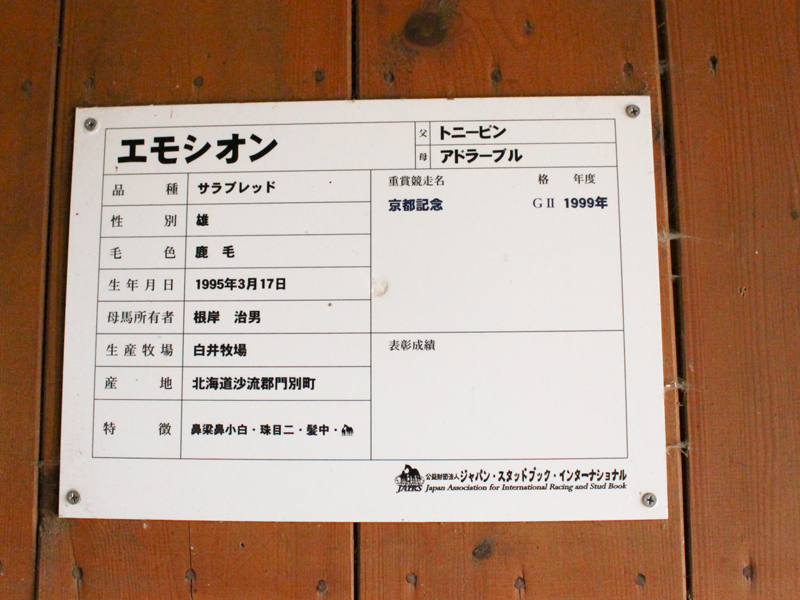 エモシオン
父 トニービン
母 アドラーブル
品種 サラブレッド
性別 雄
毛色 鹿毛
生年月日 1995年3月17日
母馬所有者 根岸 治男
生産牧場 白井牧場
産地 北海道沙流郡門別町
特徴 鼻梁鼻小白・珠目二・髪中・
重賞競走名 格 年度
京都記念 GⅡ 1999年
表彰成績
JAIRS
公益財団法人 ジャパン・スタッドブック・インターナショナル
Japan Association for International Racing and Stud Book